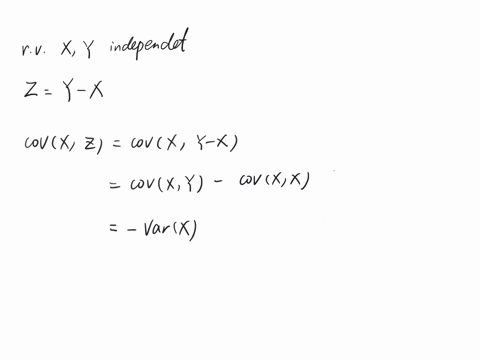 r.v. X, Y independet
Z = Y - X
cov(X, Z) = cov(X, Y-X)
= cov(X,Y) - cov(X,X)
= - Var(X)